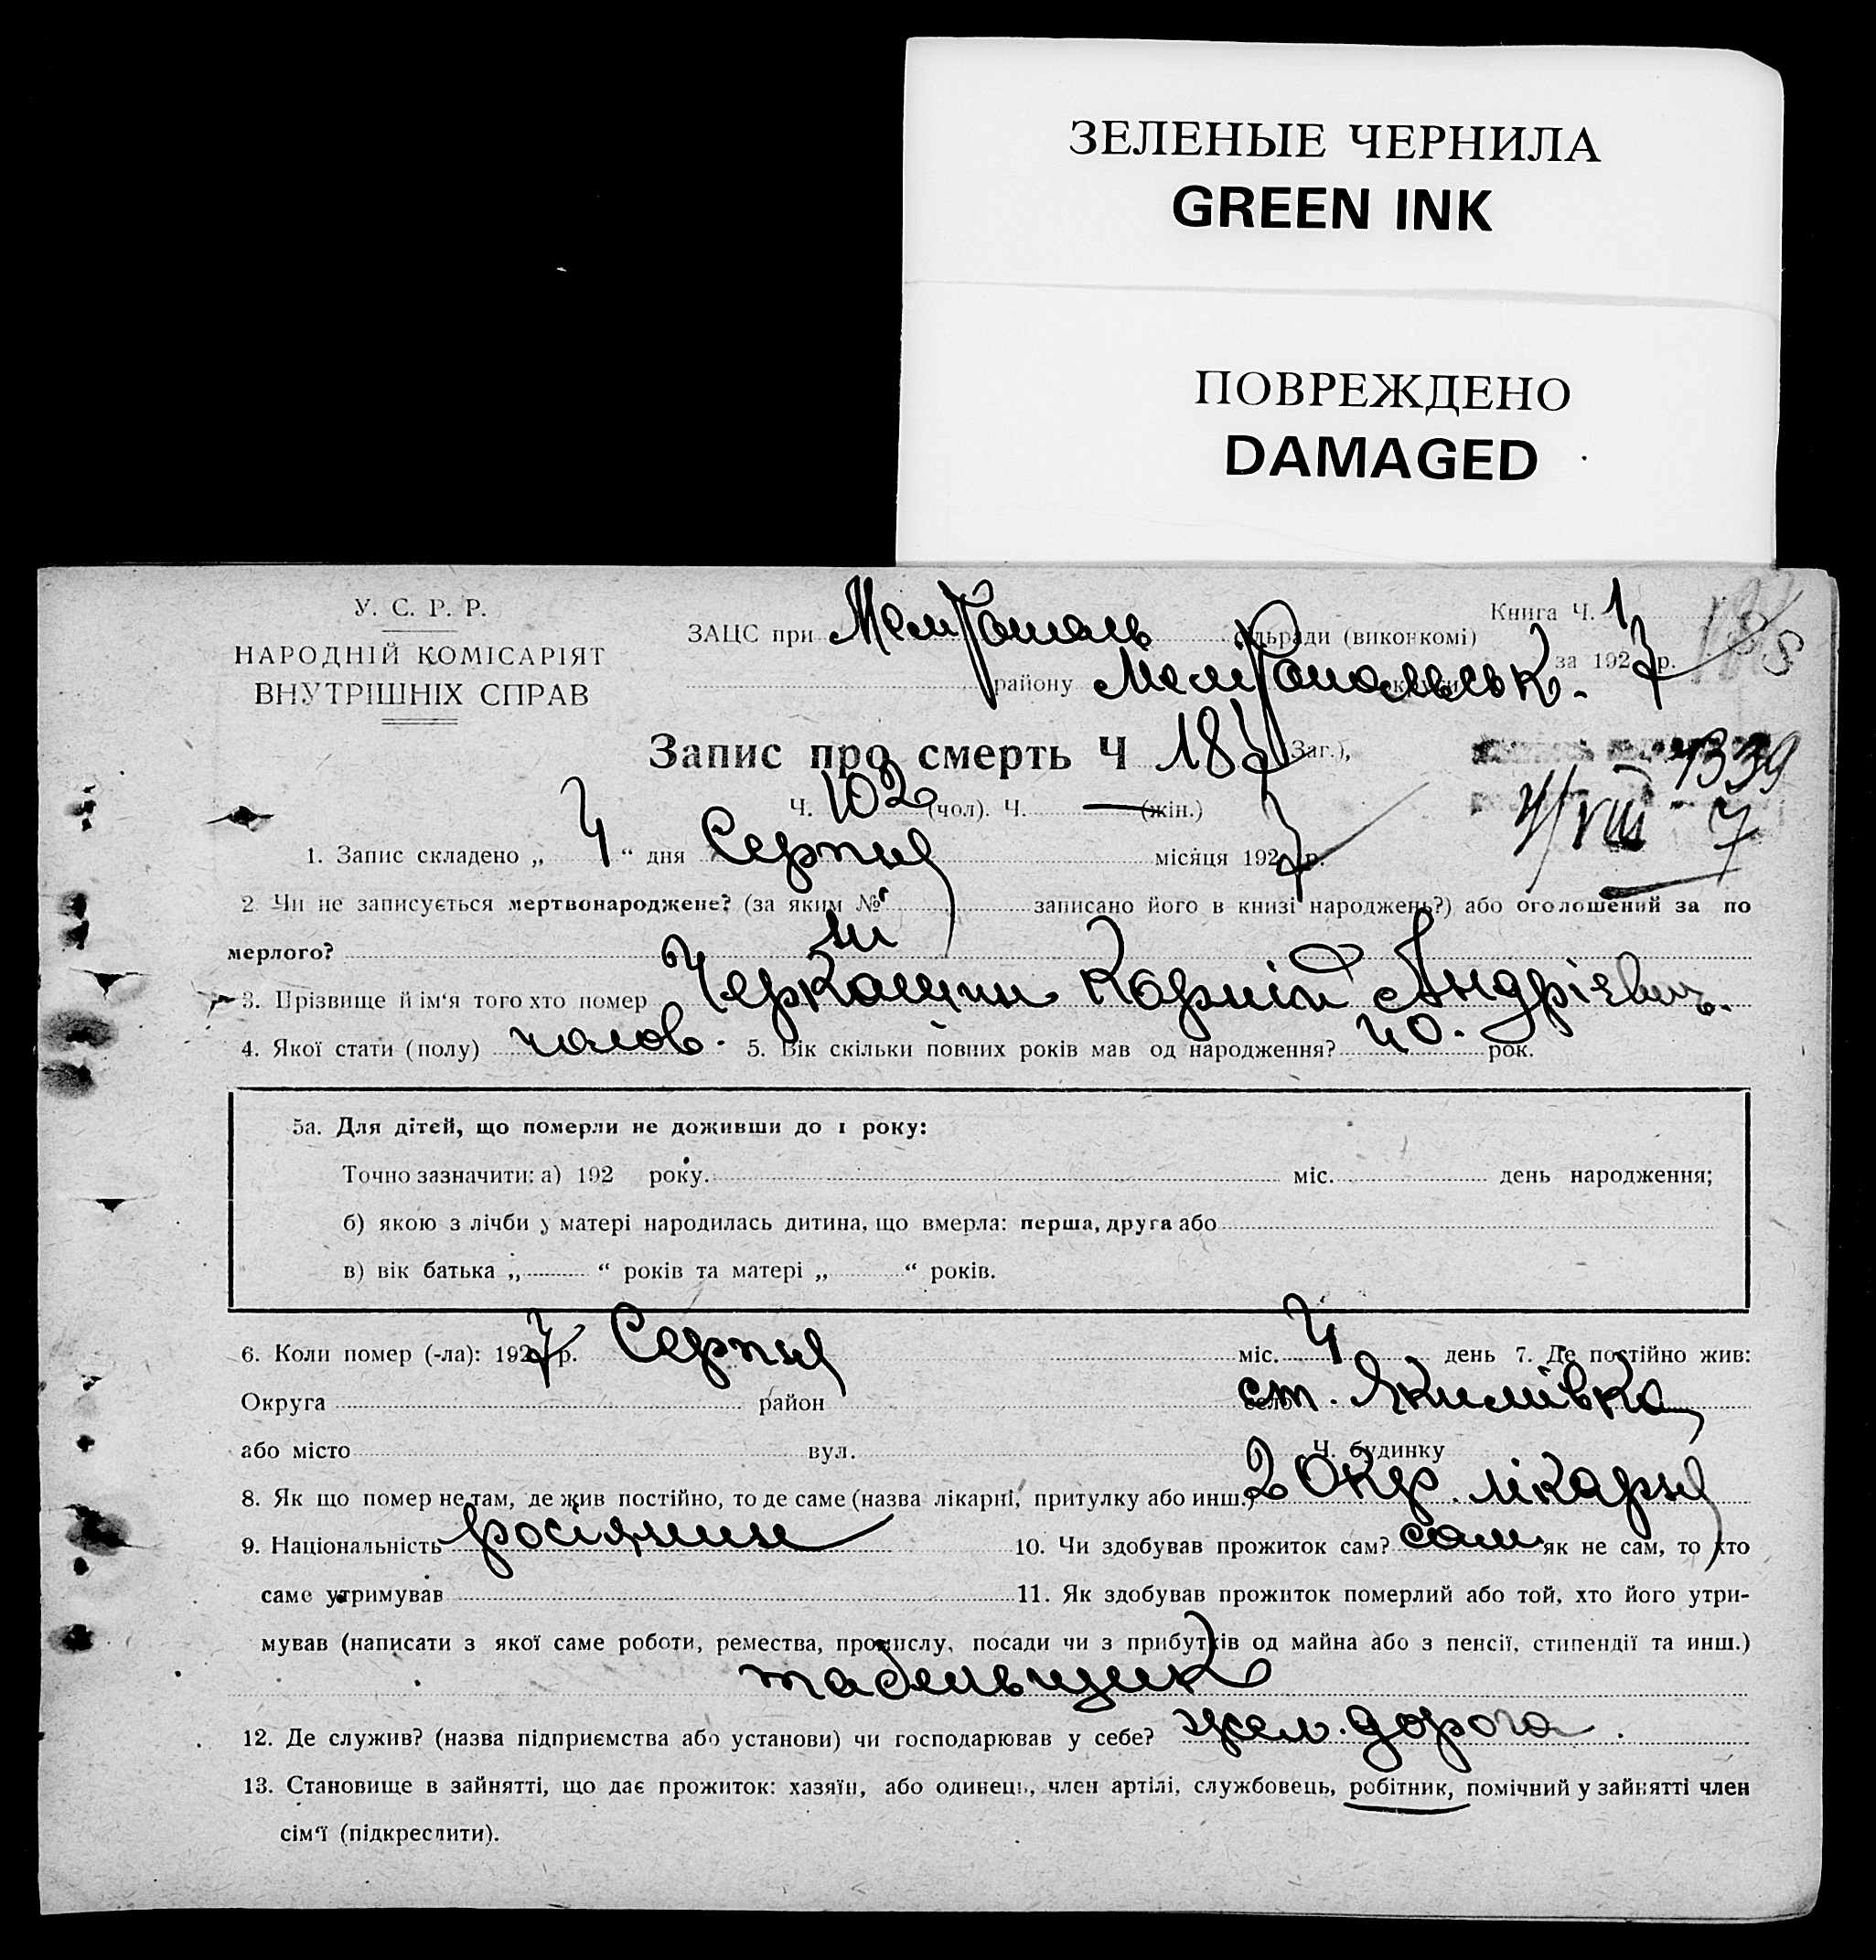 ЗЕЛЕНЫЕ ЧЕРНИЛА
GREEN INK
ПОВРЕЖДЕНО
DAMAGED
У. С. Р. Р.
НАРОДНІЙ КОМІСАРІЯТ
ВНУТРІШНІХ СПРАВ
Книга Ч. 1
ЗАЦС при Мелітополь сільради (виконкомі)
за 1927 р.
району Мелітопольськ.
Запис про смерть Ч 187 (Заг.),
1339
Ч. 102 (чол). Ч. — (жін.)
4/VIII 7
1. Запис складено „ 4 “ дня Серпня місяця 1927 р.
2 Чи не записується мертвонароджене? (за яким № записано його в книзі народжень?) або оголошений за по
мерлого? ні
3. Прізвище й ім‘я того хто помер Черкашин Корній Андрієвич.
4. Якої стати (полу) чолов. 5. Вік скільки повних років мав од народження? 40. рок.
5а. Для дітей, що померли не доживши до 1 року:
Точно зазначити: а) 192 року. міс. день народження;
б) якою з лічби у матері народилась дитина, що вмерла: перша, друга або
в) вік батька „ “ років та матері „ “ років.
6. Коли помер (-ла): 1927 р. Серпня міс. 4 день 7. Де постійно жив:
Округа район село ст. Якимівка
або місто вул. Ч. будинку
8. Як що помер не там, де жив постійно, то де саме (назва лікарні, притулку або инш.) 2 Окр. лікарня
9. Національність росіянин 10. Чи здобував прожиток сам? сам як не сам, то хто
саме утримував 11. Як здобував прожиток померлий або той, хто його утри-
мував (написати з якої саме роботи, ремества, промислу, посади чи з прибутків од майна або з пенсії, стипендії та инш.)
табельщик
12. Де служив? (назва підприємства або установи) чи господарював у себе? жел. дорога.
13. Становище в зайнятті, що дає прожиток: хазяїн, або одинець, член артілі, службовець, робітник, помічний у зайнятті член
сім‘ї (підкреслити).